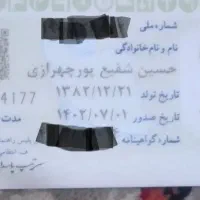 شماره ملی
نام و نام خانوادگی
حسین شفیع پورچهرازی
تاریخ تولد ۱۳۸۲/۱۲/۲۱
4177
تاریخ صدور ۱۴۰۲/۰۷/۰۱
مدت
شماره گواهینامه